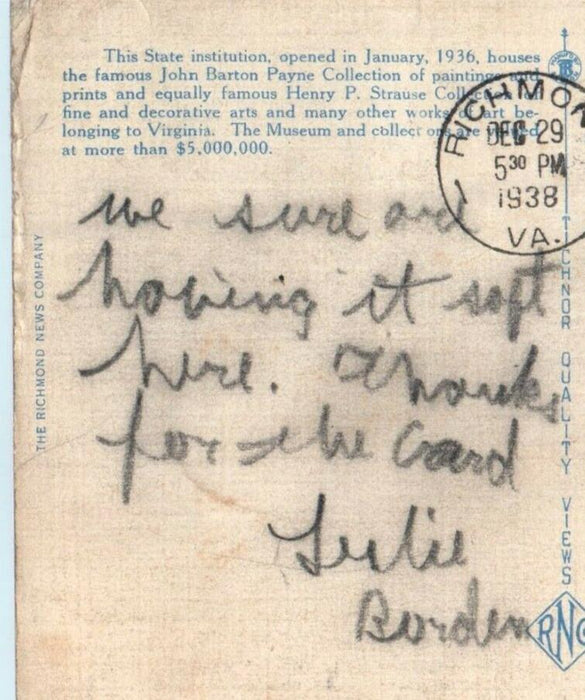 This State institution, opened in January, 1936, houses
the famous John Barton Payne Collection of paintings and
prints and equally famous Henry P. Strause Collection of
fine and decorative arts and many other works of art be-
longing to Virginia. The Museum and collections are valued
at more than $5,000,000.
RICHMON
DEC 29
5 30 PM
1938
VA.
we sure are
having it soft
here. Thanks
for the card
Leslie
Borden
THE RICHMOND NEWS COMPANY
TICHNOR QUALITY VIEWS
RNC